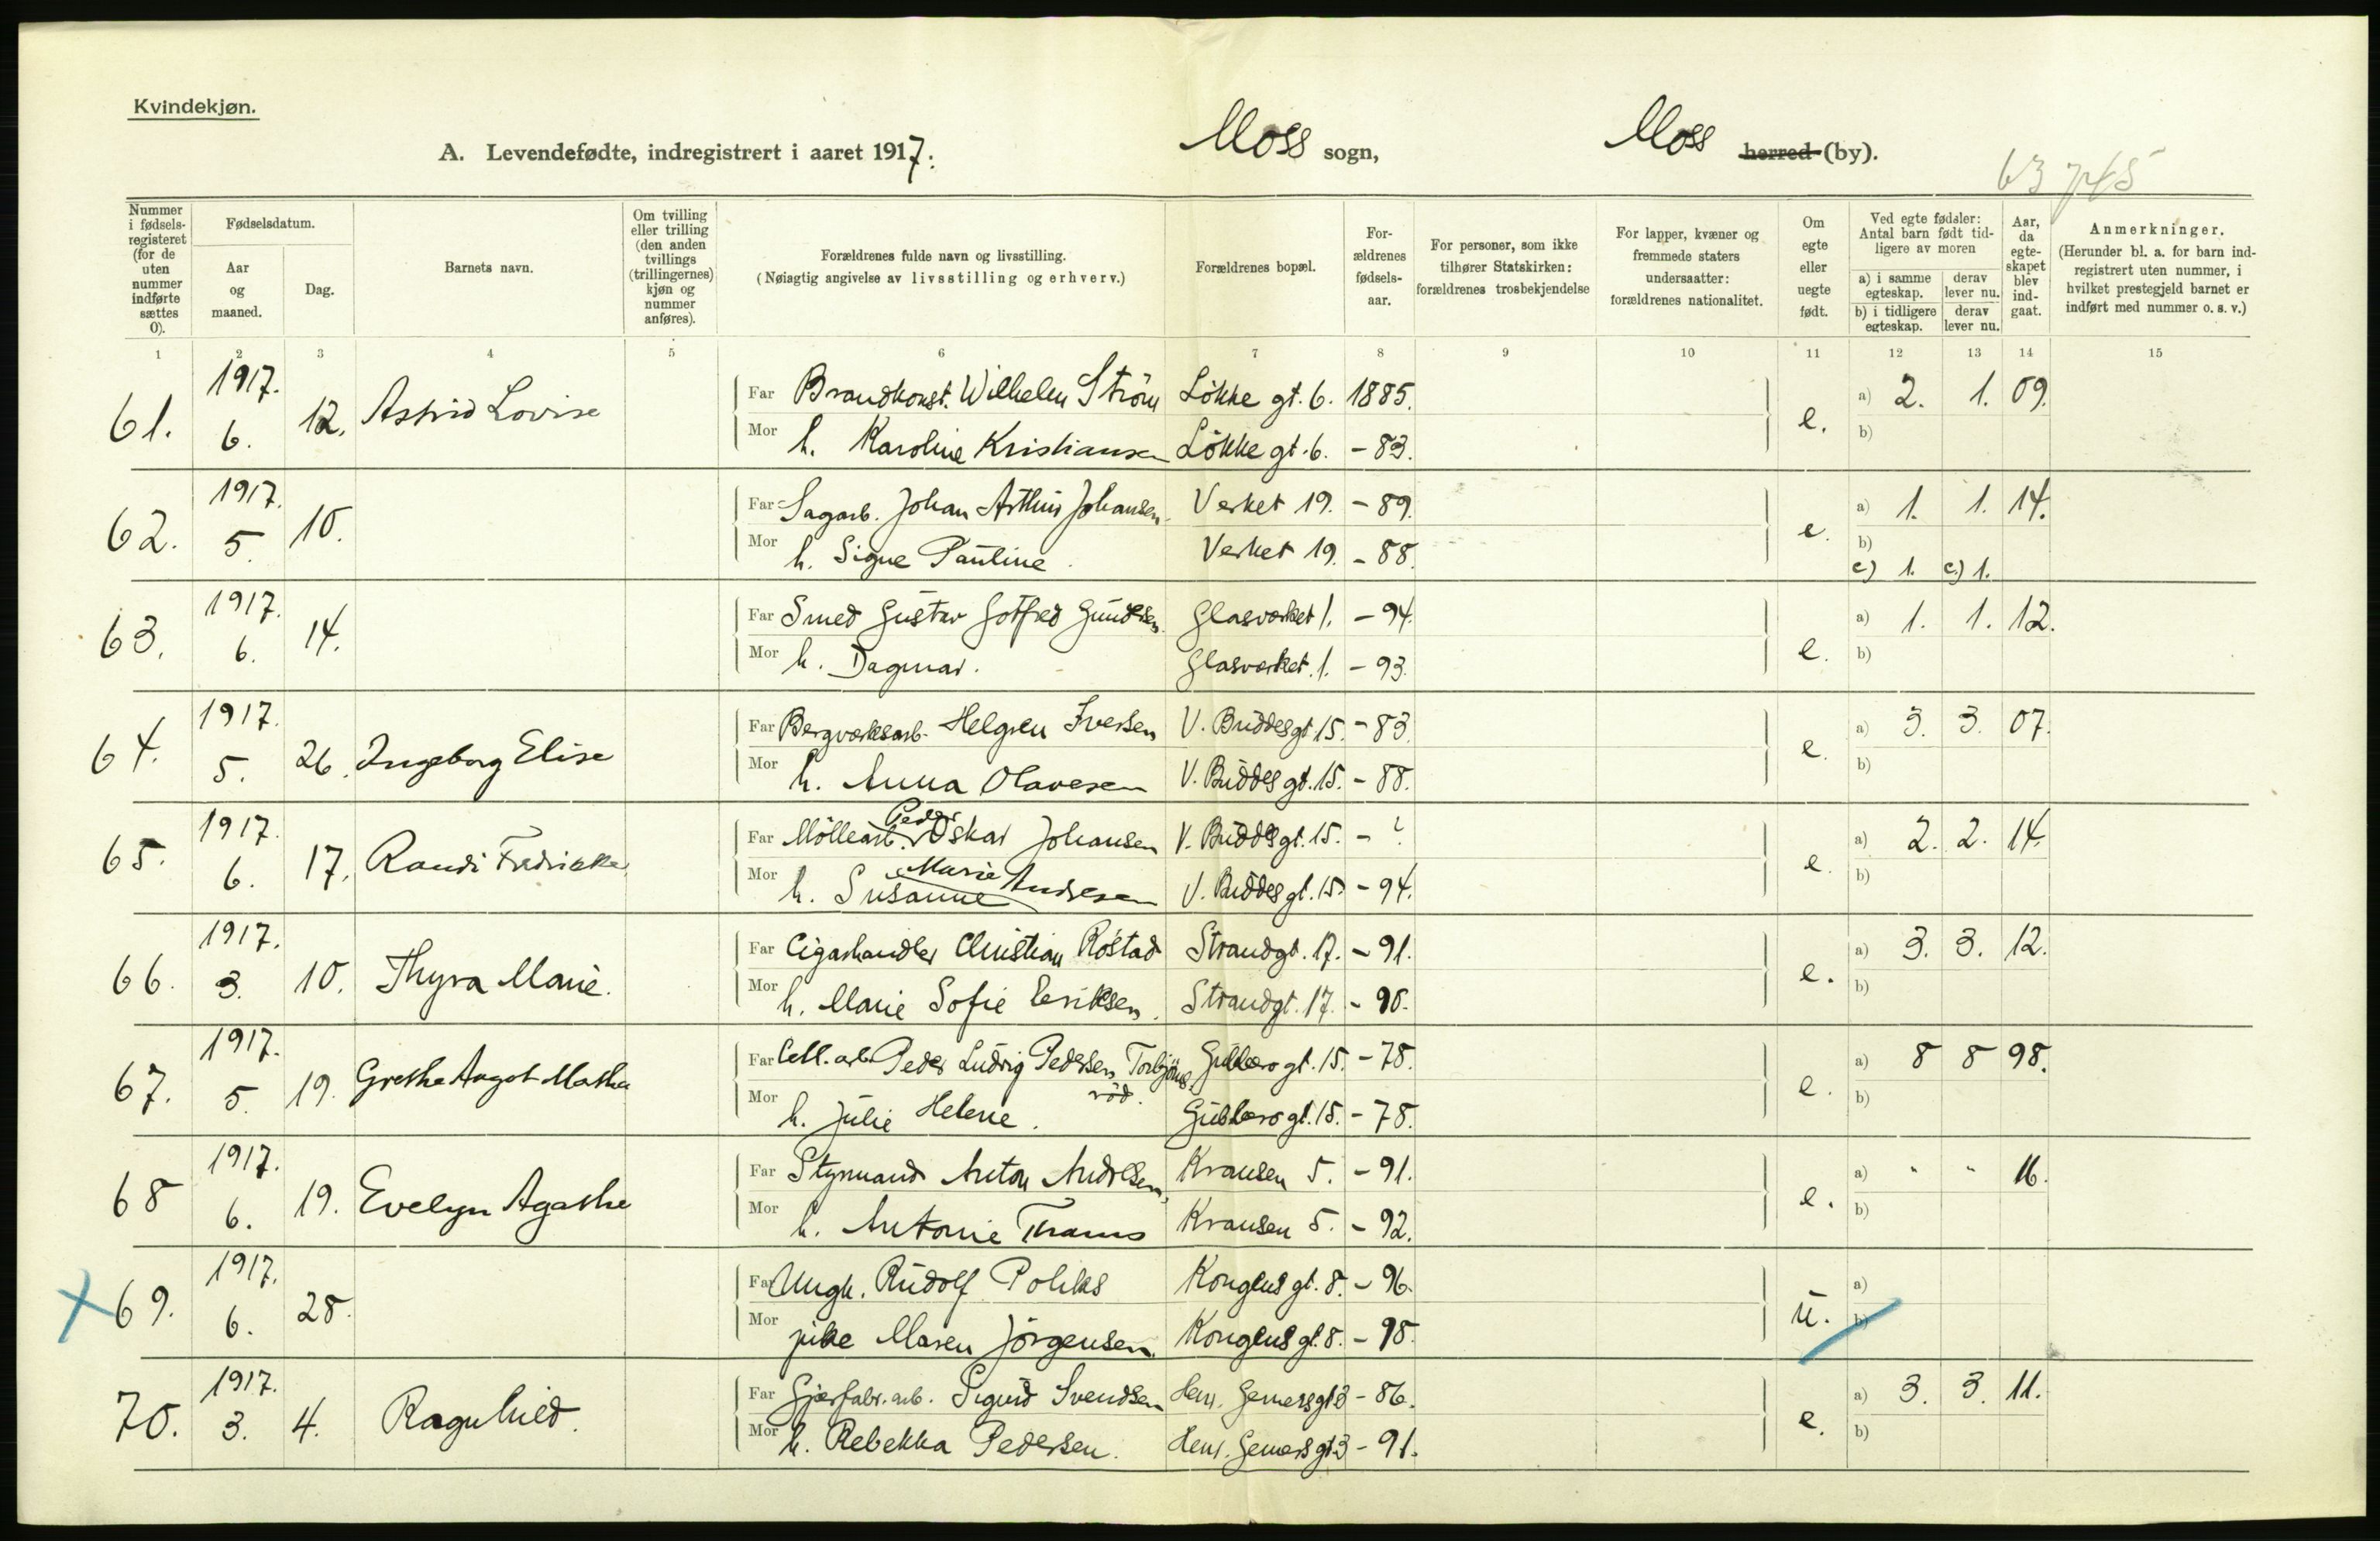 Kvindekjøn.
A. Levendefødte, indregistrert i aaret 1917. Moss sogn, Moss herred (by).
Nummer i fødselsregisteret (for de uten nummer indførte sættes 0).
Fødselsdatum.
Aar og maaned.
Dag.
Barnets navn.
Om tvilling eller trilling (den anden tvillings (trillingernes) kjøn og nummer anføres).
Forældrenes fulde navn og livsstilling.
(Nøiagtig angivelse av livsstilling og erhverv.)
Forældrenes bopæl.
For-ældrenes fødsels-aar.
For personer, som ikke tilhører Statskirken: forældrenes trosbekjendelse
For lapper, kvæner og fremmede staters undersaatter: forældrenes nationalitet.
Om egte eller uegte født.
Ved egte fødsler: Antal barn født tid-ligere av moren
a) i samme egteskap. derav lever nu.
b) i tidligere egteskap. derav lever nu.
Aar, da egte-skapet blev ind-gaat.
Anmerkninger.
(Herunder bl. a. for barn ind-registrert uten nummer, i hvilket prestegjeld barnet er indført med nummer o. s. v.)
1 2 3 4 5 6 7 8 9 10 11 12 13 14 15
61. 1917. 6. 12. Astrid Lovise
Far Brandkonst. Wilhelm Ström Løkke gt. 6. 1885. e. a) 2. 1. 09.
Mor h. Karoline Kristiansen Løkke gt. 6. - 83. b)
62. 1917. 5. 10.
Far Sagarb. Johan Arthur Johansen. Verket 19. - 89. e. a) 1. 1. 14.
Mor h. Signe Pauline. Verket 19. - 88. b)
c) 1. c) 1.
63. 1917. 6. 14.
Far Smed Gustav Gotfred Gundersen. Glasværket 1. - 94. e. a) 1. 1. 12.
Mor h. Dagmar. Glasværket. 1. - 93. b)
64. 1917. 5. 26. Ingeborg Elise
Far Bergværksarb. Helgren Iversen V. Buddes gt 15. - 83. e. a) 3. 3. 07.
Mor h. Anna Olavesen V. Buddes gt. 15. - 88. b)
65. 1917. 6. 17. Randi Fredrikke
Far Møllearb. Peder Oskar Johansen V. Buddes gt. 15. - ? e. a) 2. 2. 14.
Mor h. Susanne Marie Andresen V. Buddes gt. 15. - 94. b)
66. 1917. 3. 10. Thyra Marie.
Far Cigarhandler Christian Röstad Strandgt. 17. - 91. e. a) 3. 3. 12.
Mor h. Marie Sofie Eriksen. Strandgt. 17. - 90. b)
67. 1917. 5. 19. Grethe Angot Matha
Far Cell. arb. Peder Ludvig Pedersen Torbjörns-röd. gt. 15. - 78. e. a) 8 8 98.
Mor h. Julie Helene. gt. 15. - 78. b)
68 1917. 6. 19. Evelyn Agathe
Far Styrmand Anton Andresen, Kransen 5. - 91. e. a) " " 16.
Mor h. Antonie Thams Kransen 5. - 92. b)
69. 1917. 6. 28.
Far Ungk. Rudolf Kongens gt. 8. - 96. u. a)
Mor pike Maren Jörgensen. Kongens gt. 8. - 98. b)
70. 1917. 3. 4. Ragnhild.
Far Gjærfabr. arb. Sigurd Svendsen Henr. Gerners gt 3 - 86. e. a) 3. 3. 11.
Mor h. Rebekka Pedersen. Henr. Gerners gt 3 - 91. b)